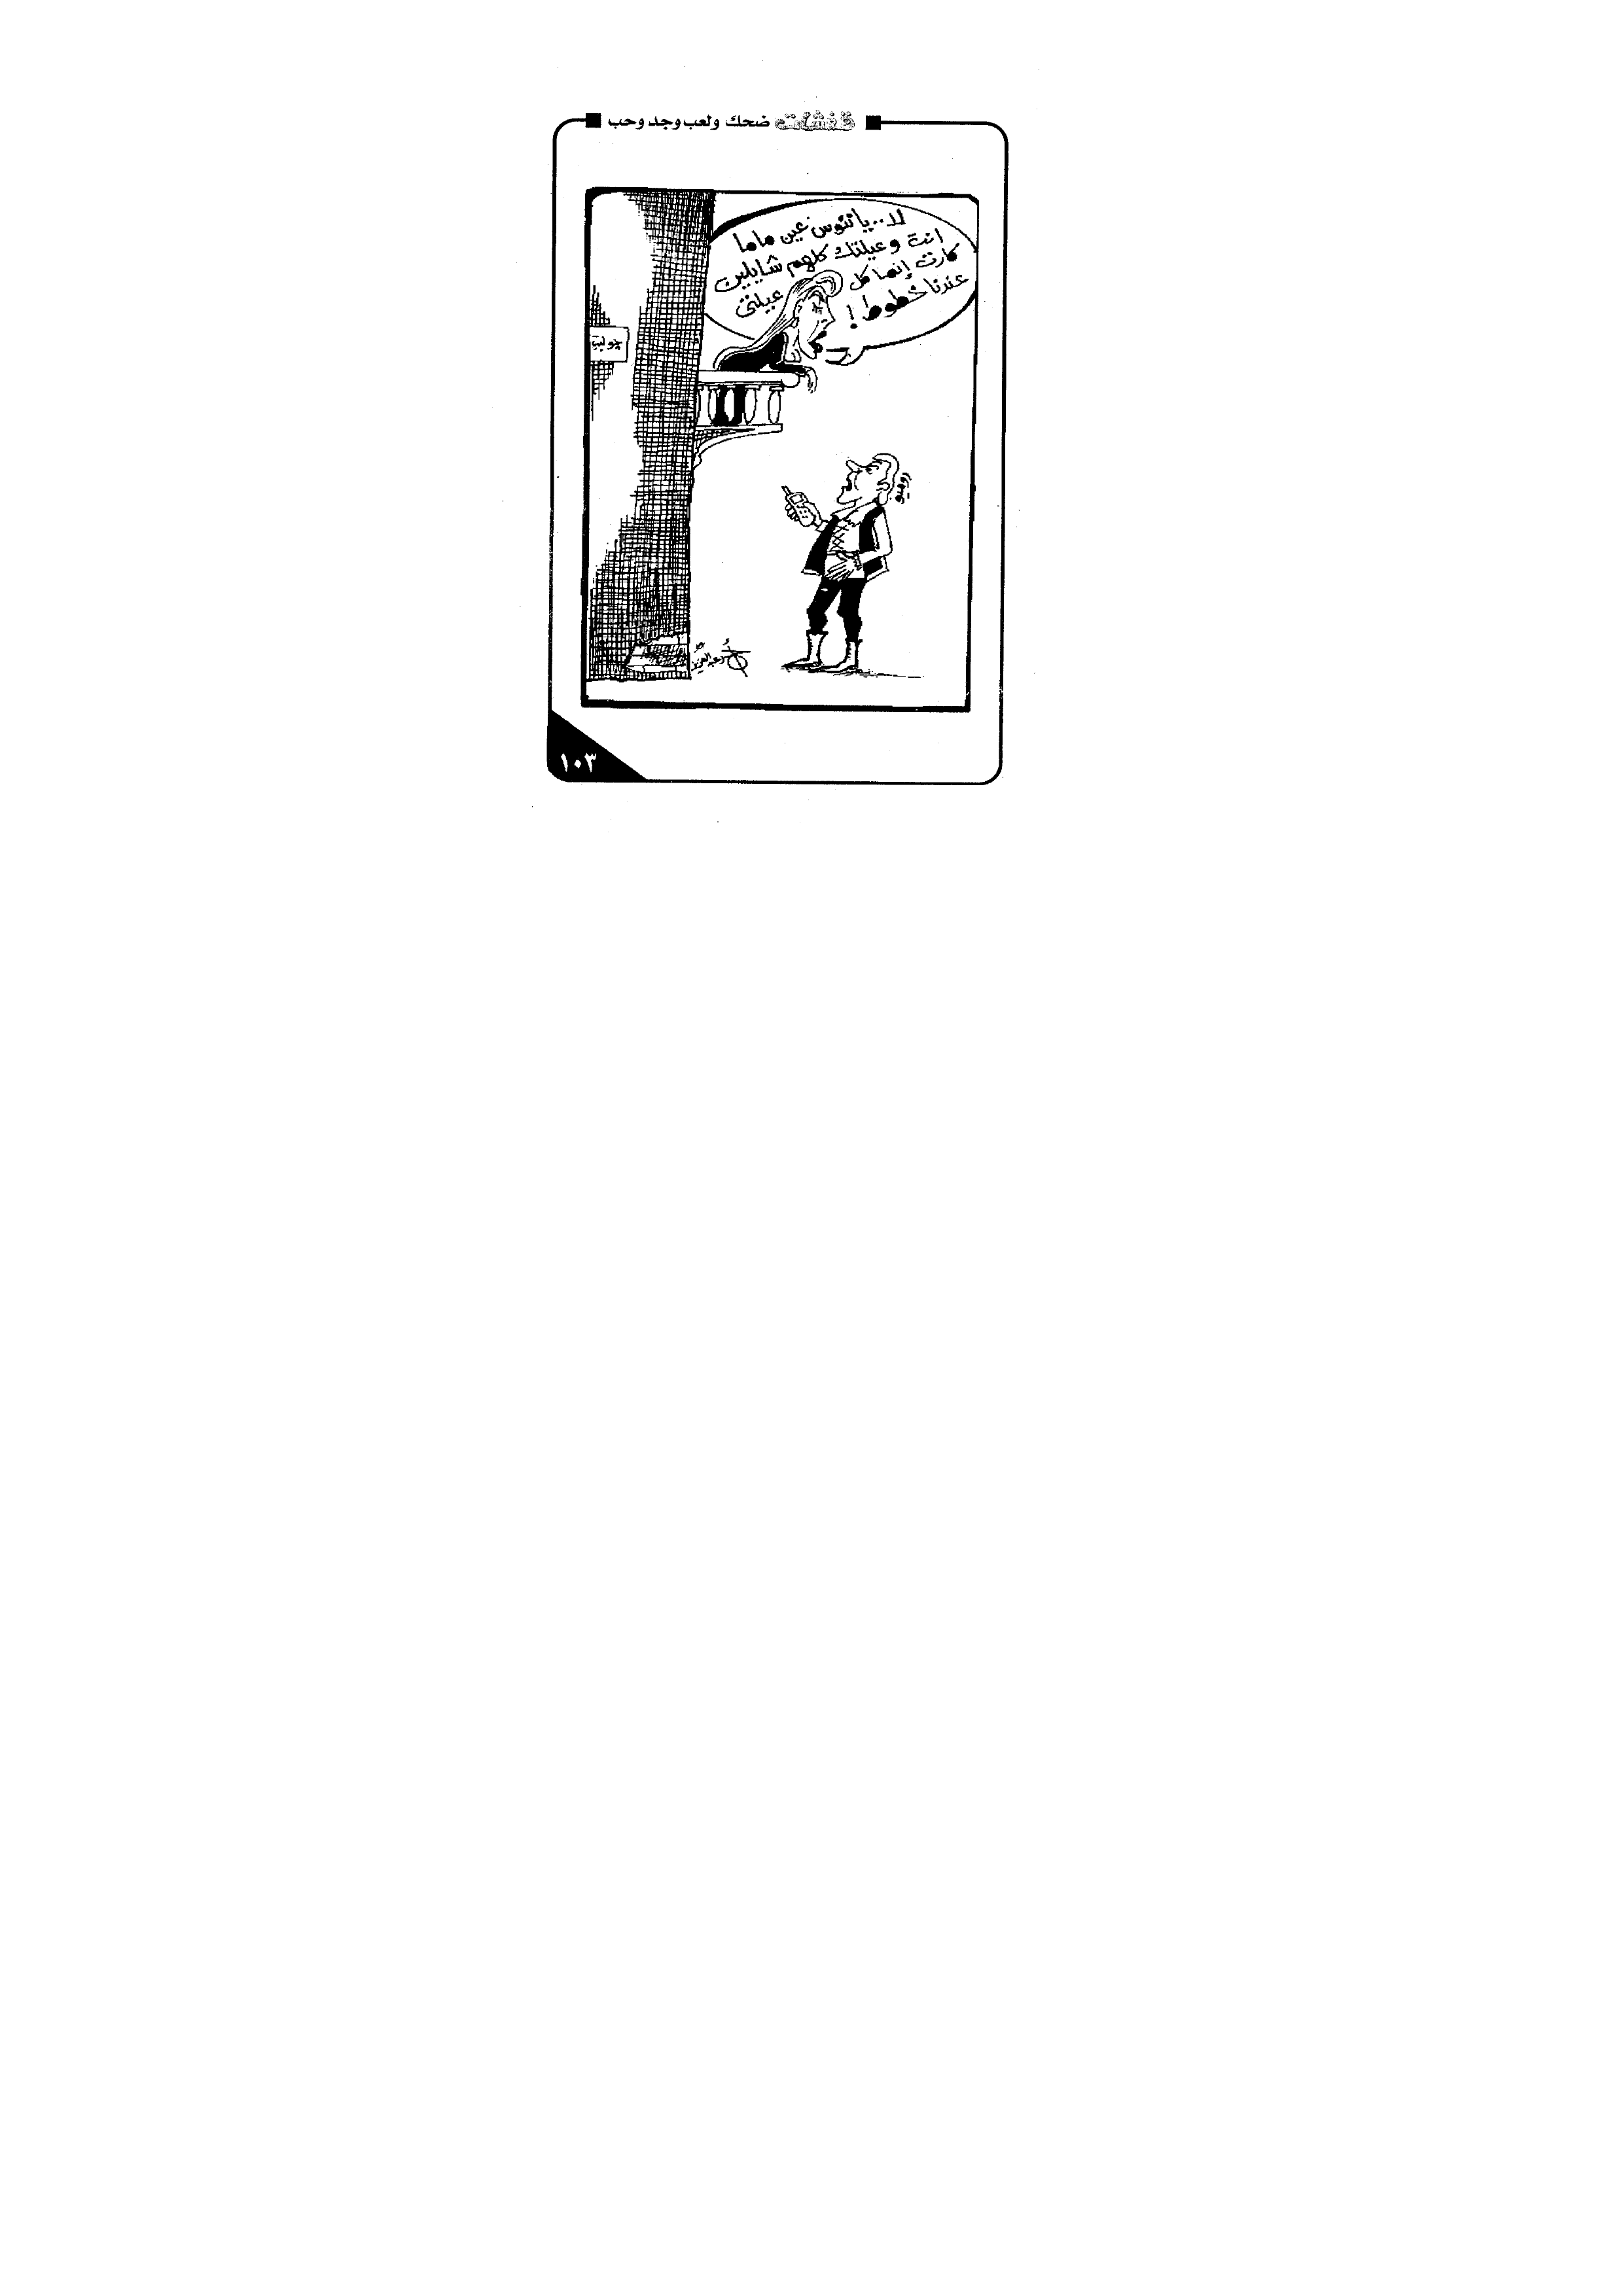 قفشات ضحك ولعب وجد وحب
لا.. يا ننوس عين ماما
انت وعيلتك كلهم شايلين
كارت إنما كل عيلتى
عندنا خطوط!
جوليت
روميو
عبدالعزيز
١٠٣